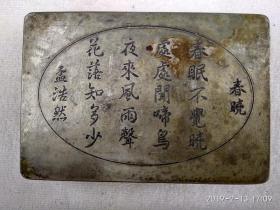 春曉
春眠不覺曉
處處聞啼鳥
夜來風雨聲
花落知多少
孟浩然
2019-2-13 17:09